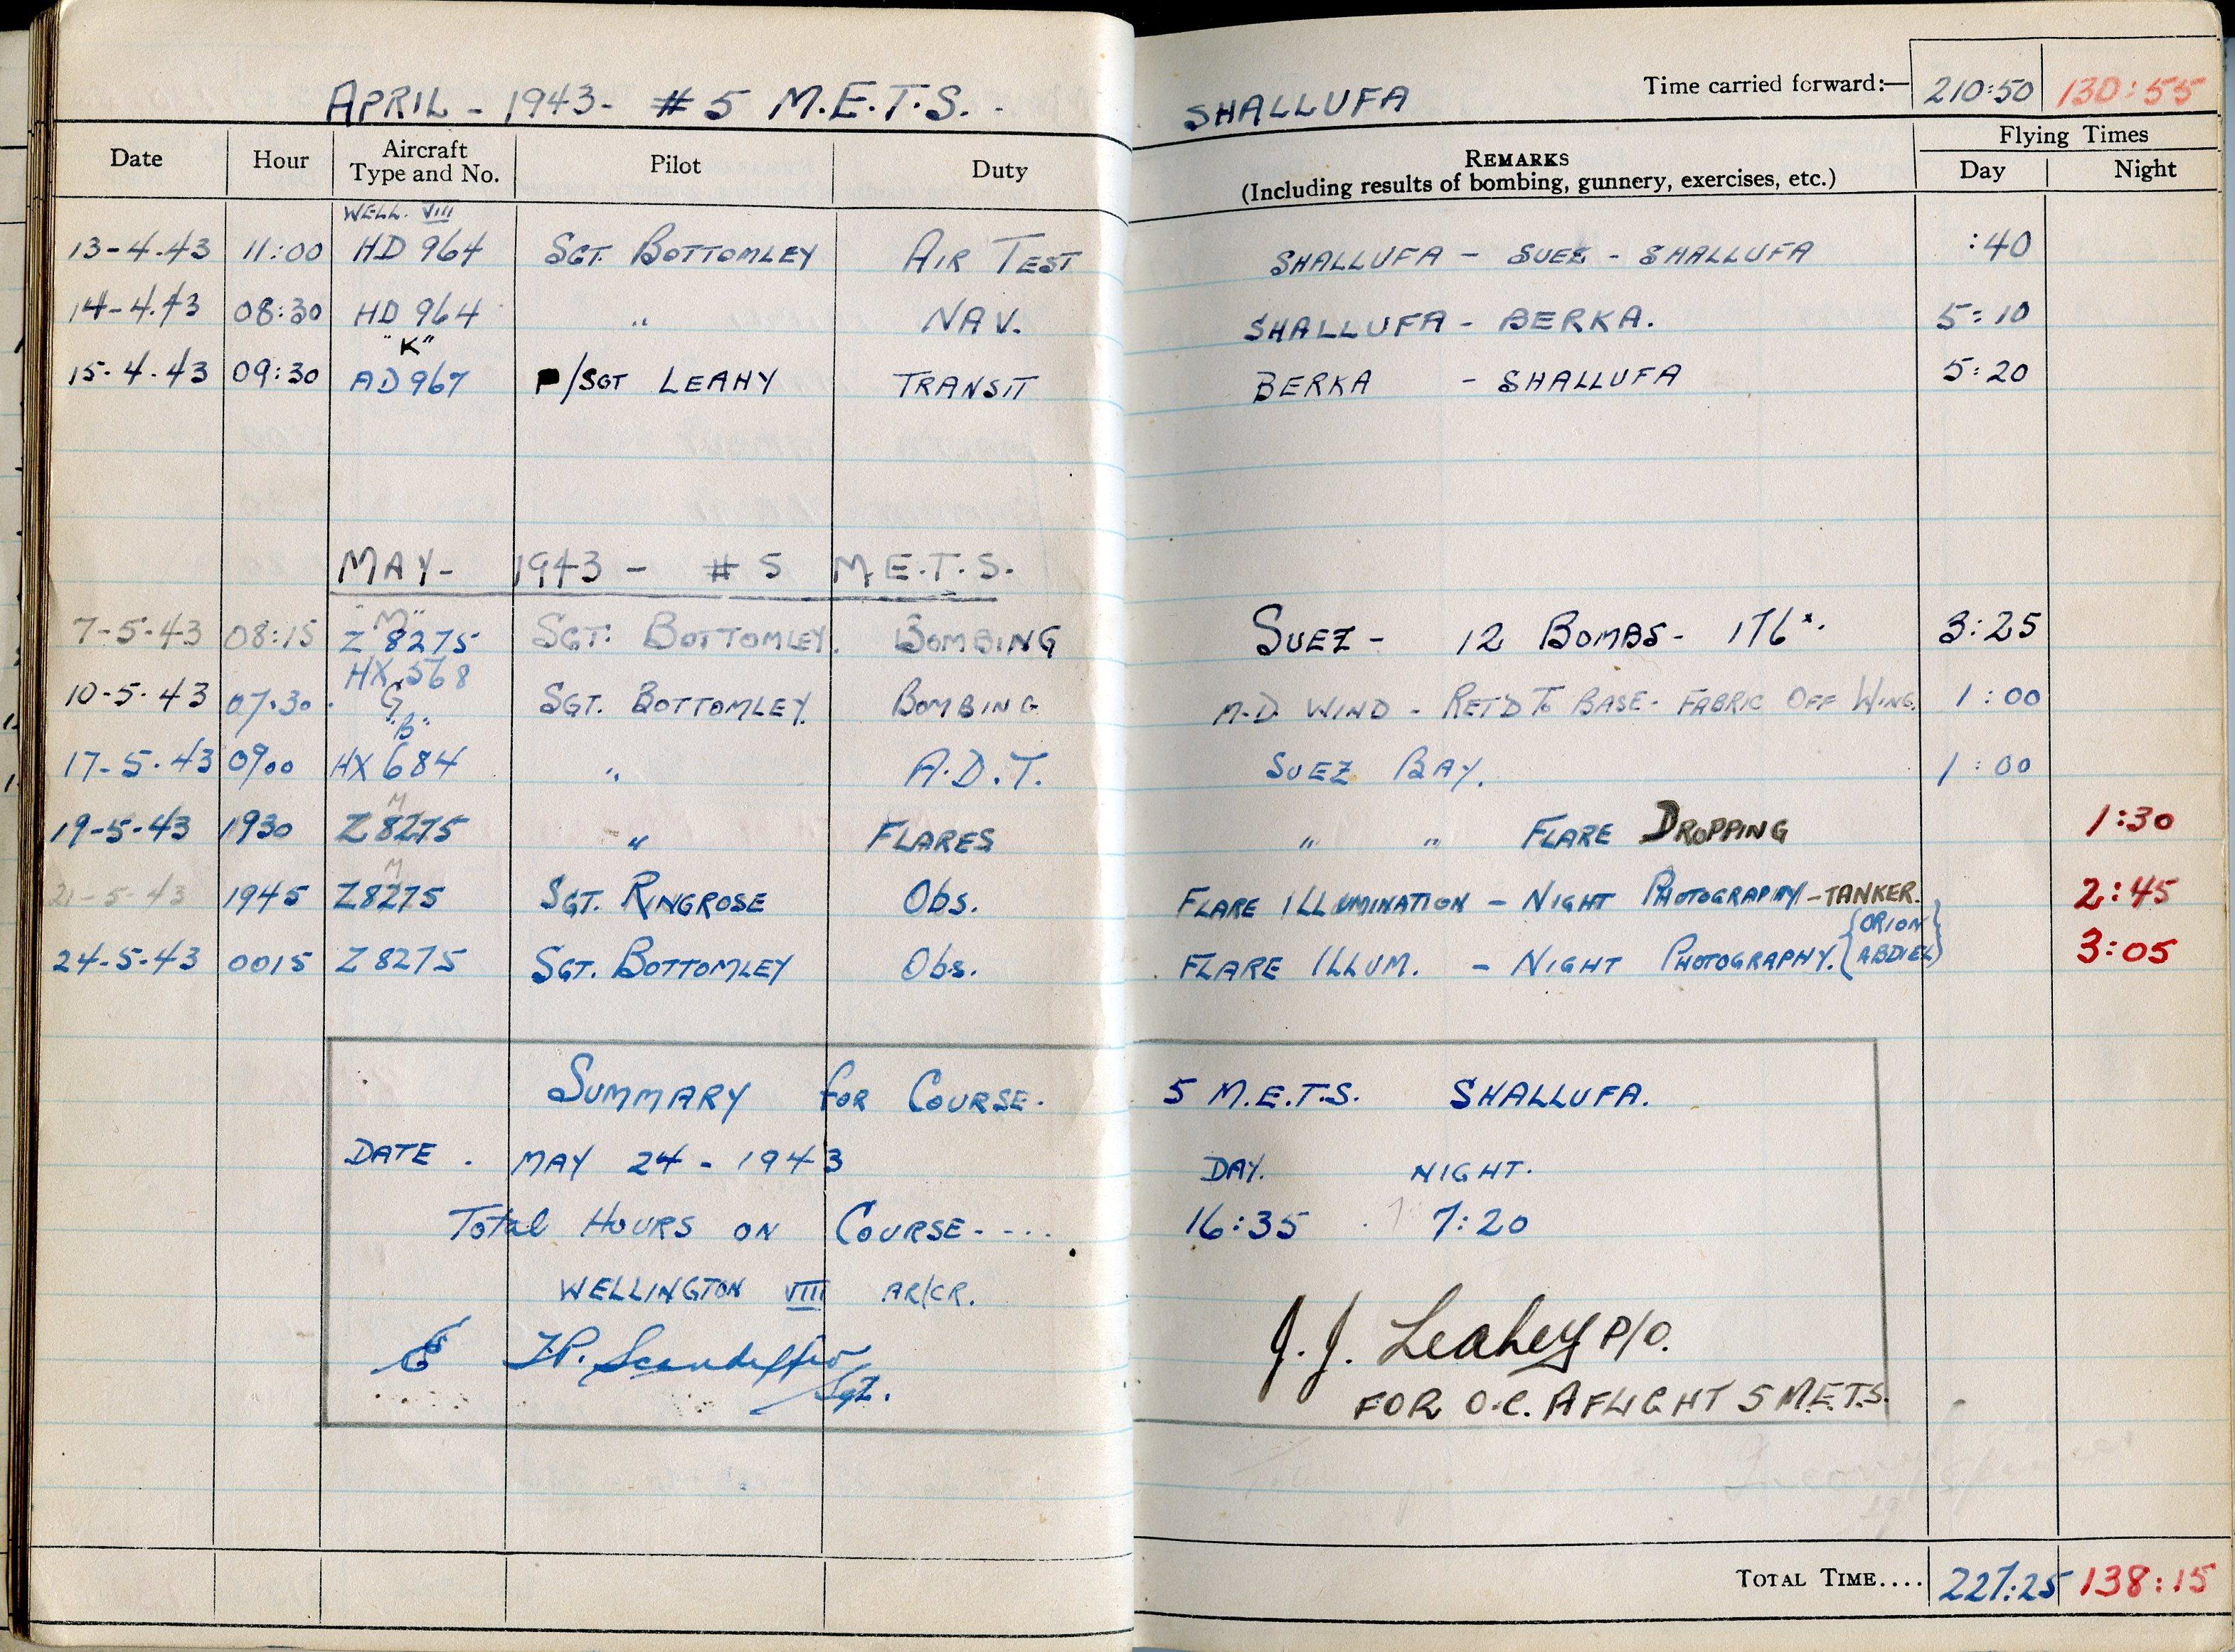 APRIL - 1943 - # 5 M.E.T.S. - SHALLUFA Time carried forward:— 210:50 130:55
Date Hour Aircraft Type and No. Pilot Duty REMARKS (Including results of bombing, gunnery, exercises, etc.) Flying Times Day Night
WELL. VIII
13-4-43 11:00 HD 964 SGT. BOTTOMLEY AIR TEST SHALLUFA - SUEZ - SHALLUFA :40
14-4-43 08:30 HD 964 " NAV. SHALLUFA - BERKA. 5:10
"K"
15-4-43 09:30 AD 967 P/SGT LEAHY TRANSIT BERKA - SHALLUFA 5:20
MAY - 1943 - # 5 M.E.T.S.
"M"
7-5-43 08:15 Z 8275 SGT. BOTTOMLEY. BOMBING SUEZ - 12 BOMBS - 176x. 3:25
HX 568
10-5-43 07:30 G SGT. BOTTOMLEY. BOMBING M.D. WIND - RET'D TO BASE - FABRIC OFF WING. 1:00
"B"
17-5-43 0900 HX 684 " A.D.T. SUEZ BAY. 1:00
M
19-5-43 1930 Z8275 " FLARES " " FLARE DROPPING 1:30
M
21-5-43 1945 Z8275 SGT. RINGROSE Obs. FLARE ILLUMINATION - NIGHT PHOTOGRAPHY - TANKER. 2:45
24-5-43 0015 Z8275 SGT. BOTTOMLEY Obs. FLARE ILLUM. - NIGHT PHOTOGRAPHY. {ORION ABDIEL} 3:05
SUMMARY FOR COURSE - 5 M.E.T.S. SHALLUFA.
DATE . MAY 24 - 1943 DAY. NIGHT.
Total HOURS ON COURSE - - .. 16:35 7:20
WELLINGTON VIII AR/CR.
J.J. Leahey P/O.
Sgt.
FOR O.C. A FLIGHT 5 M.E.T.S.
TOTAL TIME.... 227:25 138:15